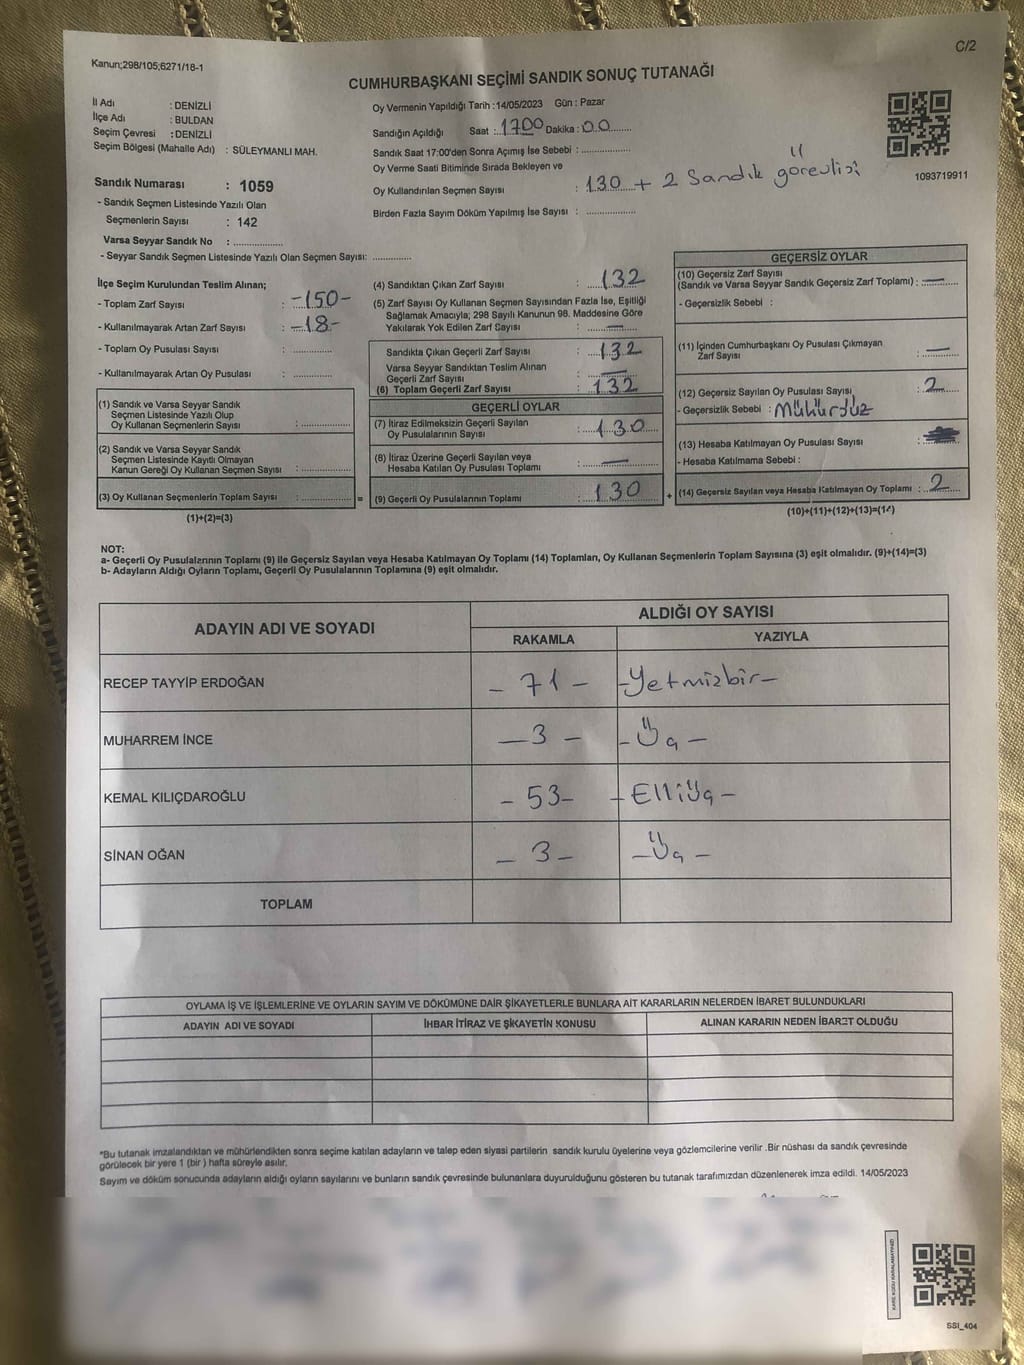 C/2
Kanun;298/105;6271/18-1
CUMHURBAŞKANI SEÇİMİ SANDIK SONUÇ TUTANAĞI
İl Adı : DENİZLİ
İlçe Adı : BULDAN
Seçim Çevresi : DENİZLİ
Seçim Bölgesi (Mahalle Adı) : SÜLEYMANLI MAH.
Sandık Numarası : 1059
- Sandık Seçmen Listesinde Yazılı Olan
Seçmenlerin Sayısı : 142
Varsa Seyyar Sandık No : ................
- Seyyar Sandık Seçmen Listesinde Yazılı Olan Seçmen Sayısı: ............
Oy Vermenin Yapıldığı Tarih :14/05/2023 Gün : Pazar
Sandığın Açıldığı Saat :..1700 Dakika :00......
Sandık Saat 17:00'den Sonra Açımış İse Sebebi : ...............
Oy Verme Saati Bitiminde Sırada Bekleyen ve
Oy Kullandırılan Seçmen Sayısı : 130 + 2 Sandık görevlisi
Birden Fazla Sayım Döküm Yapılmış İse Sayısı : ...............
1093719911
İlçe Seçim Kurulundan Teslim Alınan;
- Toplam Zarf Sayısı : -150-
- Kullanılmayarak Artan Zarf Sayısı : -18-
- Toplam Oy Pusulası Sayısı : ............
- Kullanılmayarak Artan Oy Pusulası : ............
(1) Sandık ve Varsa Seyyar Sandık
Seçmen Listesinde Yazılı Olup
Oy Kullanan Seçmenlerin Sayısı : ...............
(2) Sandık ve Varsa Seyyar Sandık
Seçmen Listesinde Kayıtlı Olmayan
Kanun Gereği Oy Kullanan Seçmen Sayısı : ...............
(3) Oy Kullanan Seçmenlerin Toplam Sayısı : ............... =
(1)+(2)=(3)
(4) Sandıktan Çıkan Zarf Sayısı : 132
(5) Zarf Sayısı Oy Kullanan Seçmen Sayısından Fazla İse, Eşitliği
Sağlamak Amacıyla; 298 Sayılı Kanunun 98. Maddesine Göre
Yakılarak Yok Edilen Zarf Sayısı : —
Sandıkta Çıkan Geçerli Zarf Sayısı : 132
Varsa Seyyar Sandıktan Teslim Alınan
Geçerli Zarf Sayısı : —
(6) Toplam Geçerli Zarf Sayısı : 132
GEÇERLİ OYLAR
(7) İtiraz Edilmeksizin Geçerli Sayılan
Oy Pusulalarının Sayısı : 130
(8) İtiraz Üzerine Geçerli Sayılan veya
Hesaba Katılan Oy Pusulası Toplamı : —
(9) Geçerli Oy Pusulalarının Toplamı : 130 +
GEÇERSİZ OYLAR
(10) Geçersiz Zarf Sayısı
(Sandık ve Varsa Seyyar Sandık Geçersiz Zarf Toplamı) : —
- Geçersizlik Sebebi :
(11) İçinden Cumhurbaşkanı Oy Pusulası Çıkmayan
Zarf Sayısı : —
(12) Geçersiz Sayılan Oy Pusulası Sayısı : 2
- Geçersizlik Sebebi : Mühürsüz
(13) Hesaba Katılmayan Oy Pusulası Sayısı :
- Hesaba Katılmama Sebebi :
(14) Geçersiz Sayılan veya Hesaba Katılmayan Oy Toplamı : 2
(10)+(11)+(12)+(13)=(14)
NOT:
a- Geçerli Oy Pusulalarının Toplamı (9) ile Geçersiz Sayılan veya Hesaba Katılmayan Oy Toplamı (14) Toplamları, Oy Kullanan Seçmenlerin Toplam Sayısına (3) eşit olmalıdır. (9)+(14)=(3)
b- Adayların Aldığı Oyların Toplamı, Geçerli Oy Pusulalarının Toplamına (9) eşit olmalıdır.
ADAYIN ADI VE SOYADI ALDIĞI OY SAYISI
RAKAMLA YAZIYLA
RECEP TAYYİP ERDOĞAN - 71 - -Yetmizbir-
MUHARREM İNCE - 3 - - Üç -
KEMAL KILIÇDAROĞLU - 53 - - Elliüç -
SİNAN OĞAN - 3 - - Üç -
TOPLAM
OYLAMA İŞ VE İŞLEMLERİNE VE OYLARIN SAYIM VE DÖKÜMÜNE DAİR ŞİKAYETLERLE BUNLARA AİT KARARLARIN NELERDEN İBARET BULUNDUKLARI
ADAYIN ADI VE SOYADI İHBAR İTİRAZ VE ŞİKAYETİN KONUSU ALINAN KARARIN NEDEN İBARET OLDUĞU
*Bu tutanak imzalandıktan ve mühürlendikten sonra seçime katılan adayların ve talep eden siyasi partilerin sandık kurulu üyelerine veya gözlemcilerine verilir .Bir nüshası da sandık çevresinde
görülecek bir yere 1 (bir ) hafta süreyle asılır.
Sayım ve döküm sonucunda adayların aldığı oyların sayılarını ve bunların sandık çevresinde bulunanlara duyurulduğunu gösteren bu tutanak tarafımızdan düzenlenerek imza edildi. 14/05/2023
KARE KODU KARALAMAYINIZ!
SSI_404